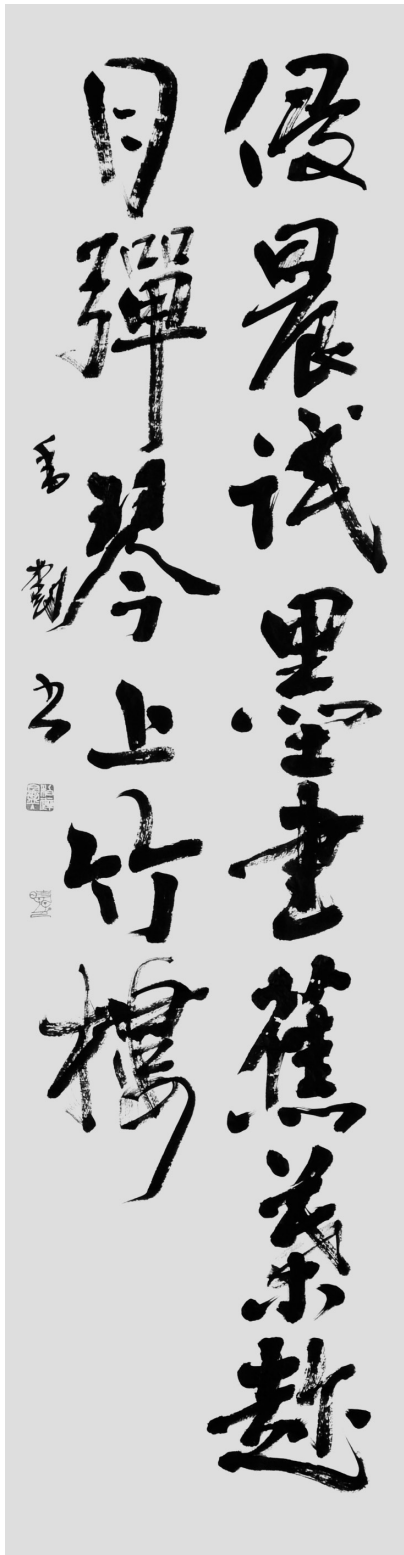 侵晨試墨書蕉葉趁
月彈琴上竹樓